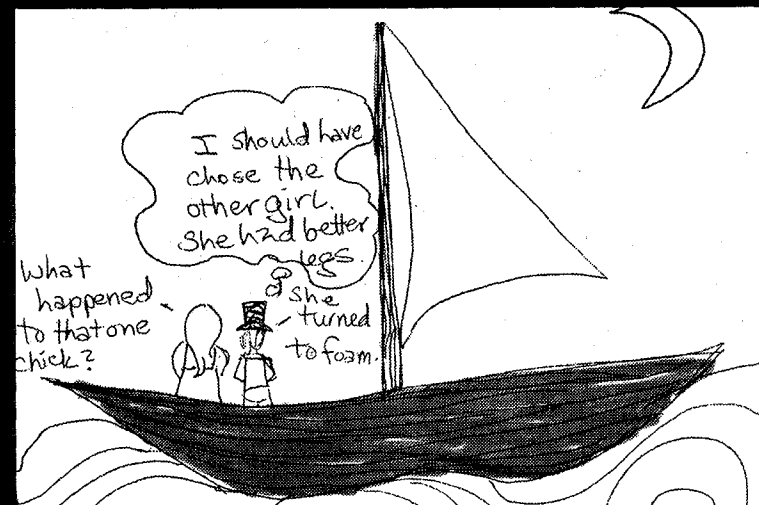 I should have
chose the
other girl.
She had better
legs.
What
happened
to that one
chick?
She
turned
to foam.